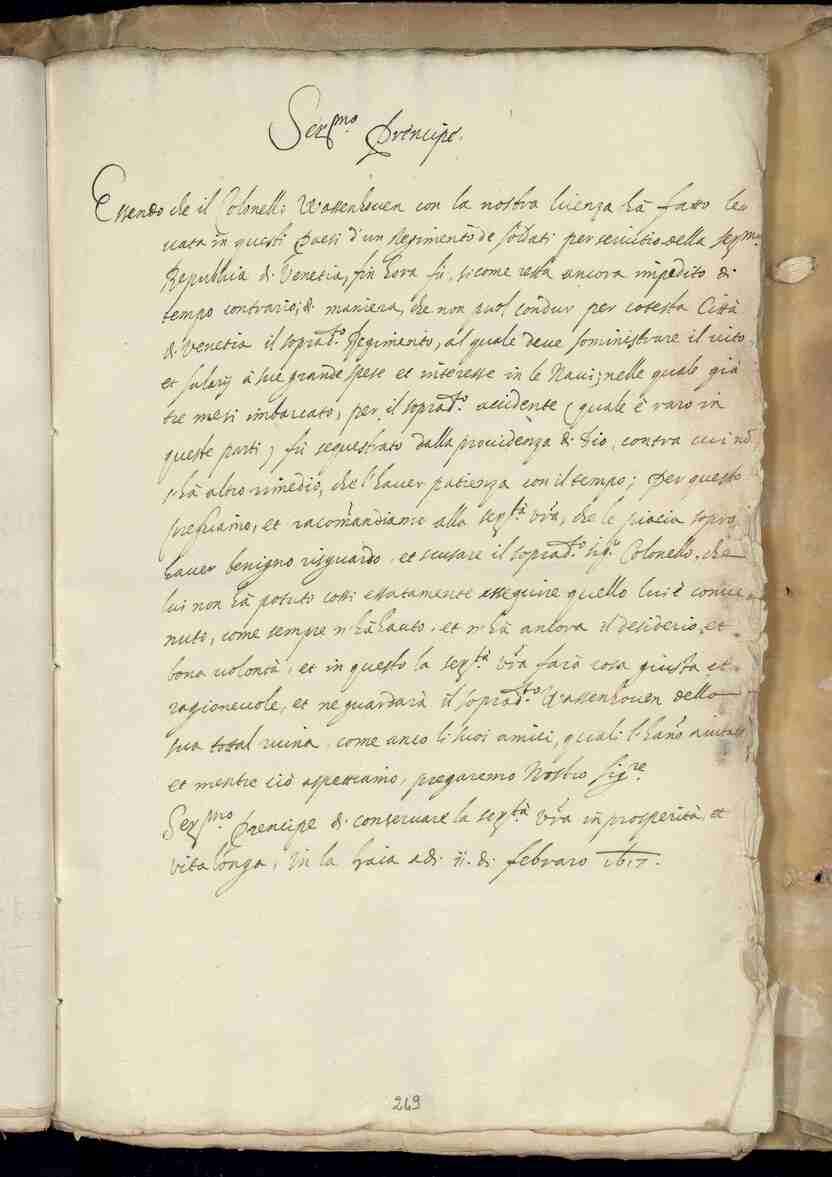 Ser.mo Prencipe.
Essendo che il Colonello Wassenhoven con la nostra licenza hà fatto le-
vata in questi Paesi d'un Regimento de soldati per servitio della Ser.ma
Republica di Venetia, sin hora fù, si come resta ancora impedito di
tempo contrario; di maniera, che non puol condur per cotesta Città
di Venetia il soprad.to Regimento, al quale deve soministrare il vito,
et salarij à sue grande spese et interesse in le Navi; nelle quale già
tre mesi imbarcato, per il soprad.to accidente (quale è raro in
queste parti) fù sequestrato dalla providenza di Dio, contra cui nõ
s'hà altro rimedio, che l'haver patienza con il tempo; Per questo
preghiamo, et racom̃andiamo alla Ser.tà v̅r̅a, che le piacia sopra
haver benigno risguardo, et scusare il soprad.to sig.r Colonello, che
lui non hà potuto cossi essatamente esseguire quello lui è conve-
nuto, come sempre n'hà hauto, et n'hà ancora il desiderio, et
bona volontà, et in questo la Ser.tà v̅r̅a farà cosa giusta, et
ragionevole, et ne guardarà il soprad.to Wassenhoven della
sua total ruina, come anco li suoi amici, quali l'hano aiutato
et mentre ciò aspettiamo, pregaremo Nostro Sig.re
Ser.mo Prencipe di conservare la Ser.tà v̅r̅a in prosperità, et
vita longa, In la Haia adi 11. di febraro 1617.
249